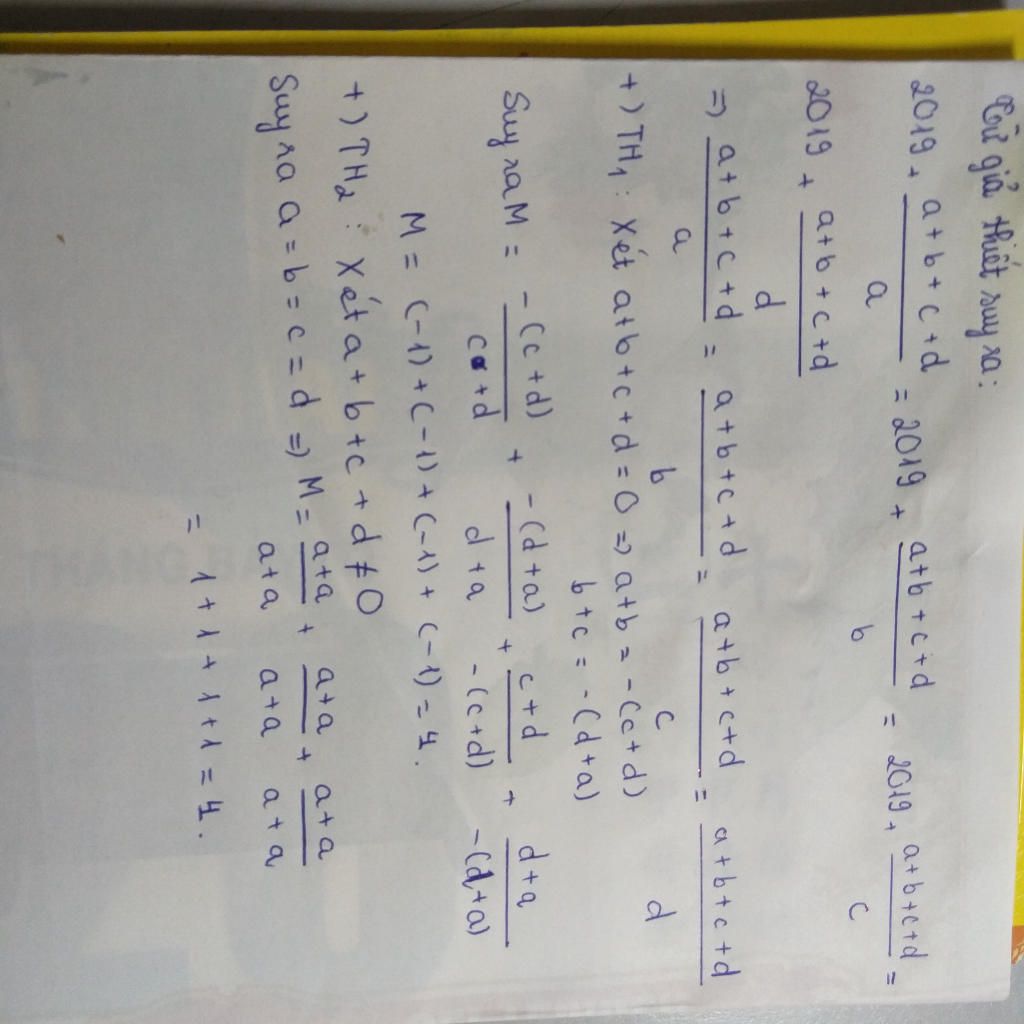 Từ giả thiết suy ra:
2019 + a+b+c+d/a = 2019 + a+b+c+d/b = 2019 + a+b+c+d/c =
2019 + a+b+c+d/d
=> a+b+c+d/a = a+b+c+d/b = a+b+c+d/c = a+b+c+d/d
+) TH1: Xét a+b+c+d=0 => a+b = -(c+d)
b+c = -(d+a)
Suy ra M = -(c+d)/c+d + -(d+a)/d+a + c+d/-(c+d) + d+a/-(d+a)
M = (-1)+(-1)+(-1)+(-1)=4.
+) TH2: Xét a+b+c+d≠0
Suy ra a=b=c=d => M = a+a/a+a + a+a/a+a + a+a/a+a
= 1+1+1+1=4.